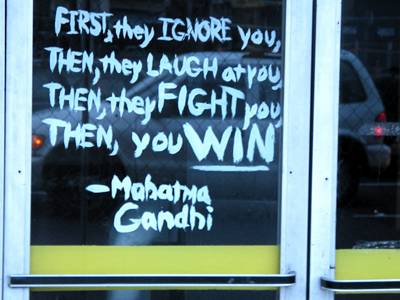 FIRST, they IGNORE you,
THEN, they LAUGH at you,
THEN, they FIGHT you,
THEN, you WIN
- Mahatma
Gandhi